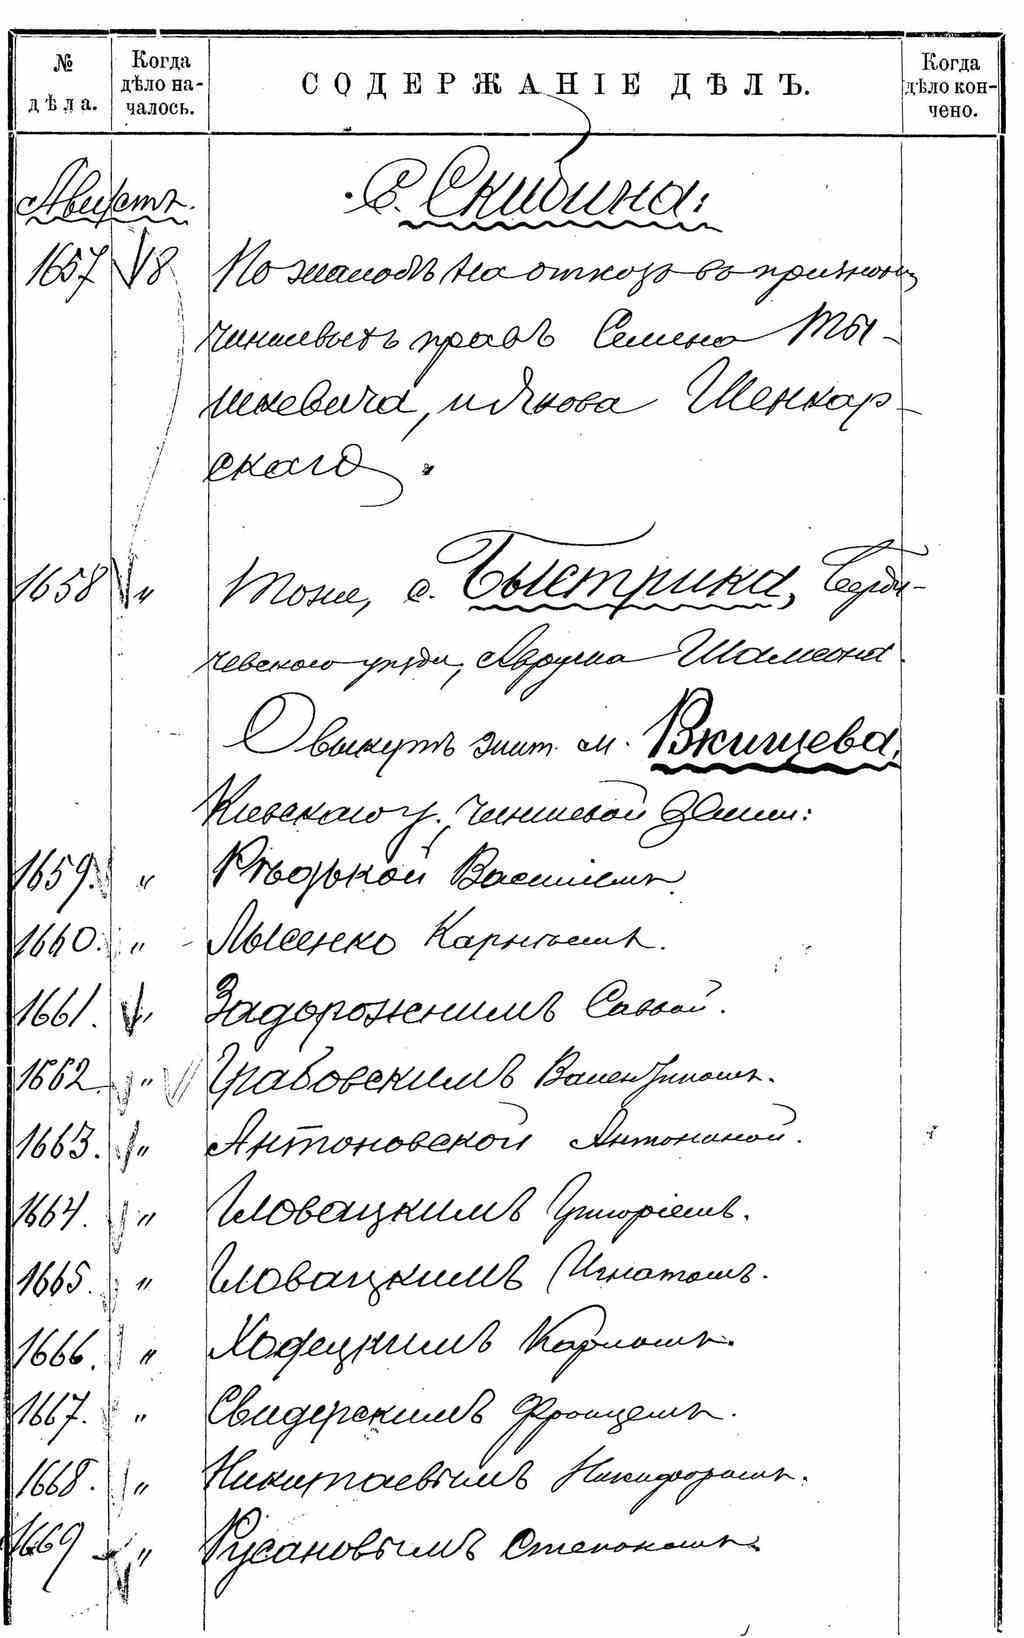 № дѣла.
Когда дѣло на-
чалось.
СОДЕРЖАНІЕ ДѢЛЪ.
Когда дѣло кон-
чено.
Августъ.
с. Скибина:
1657 18 По жалобѣ на отказъ въ признаніи
чиншевыхъ правъ Семена Ты-
шкевича, и Якова Шенкар-
скаго.
1658 " Тоже, с. Быстрика, Берди-
чевскаго уѣзда, Аврума Шамеона.
О выкупѣ жит. м.
Кіевскаго у., чиншевой земли:
1659. " Рѣдькой Василіемъ.
1660. " Лысенко
1661. " Задорожнимъ Саввой.
1662 " Грабовскимъ Валентиномъ.
1663. " Антоновской Антониной.
1664. " Гловацкимъ Григоріемъ.
1665. " Гловацкимъ Игнатомъ.
1666. " Ходецкимъ Карломъ.
1667. " Свидерскимъ Францемъ.
1668. " Никитаевымъ Никифоромъ.
1669 " Русановымъ Степаномъ.